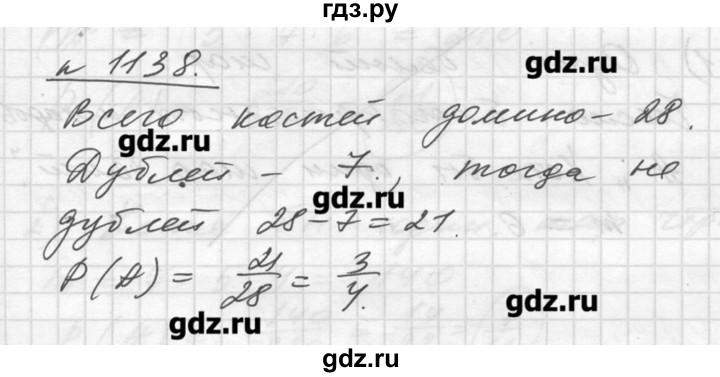 гдз.ру
n 1138.
gdz.ru
Всего костей домино - 28.
gdz.ru
Дублей - 7, тогда не
gdz.ru
дублей 28-7=21.
P(A) = 21/28 = 3/4.
gdz.ru
gdz.ru
gdz.ru